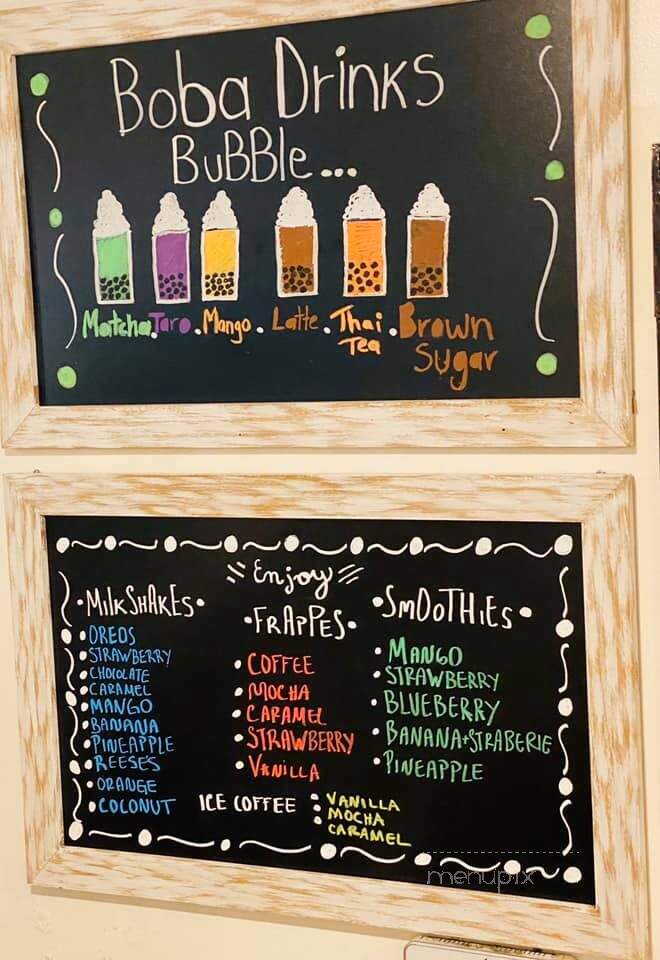 Boba Drinks
BuBBle...
Matcha. Taro. Mango. Latte. Thai Tea. Brown Sugar
Enjoy
•MilkSHAKEs•
•OREOS
•STRAWBERRY
•CHOCOLATE
•CARAMEL
•MANGO
•BANANA
•PINEAPPLE
•REESES
•ORANGE
•COCONUT
•FRAPPES•
•COFFEE
•MOCHA
•CARAMEL
•STRAWBERRY
•VANILLA
•SMOOTHIES•
•MANGO
•STRAWBERRY
•BLUEBERRY
•BANANA+STRABERIE
•PINEAPPLE
ICE COFFEE
•VANILLA
•MOCHA
•CARAMEL
menupix